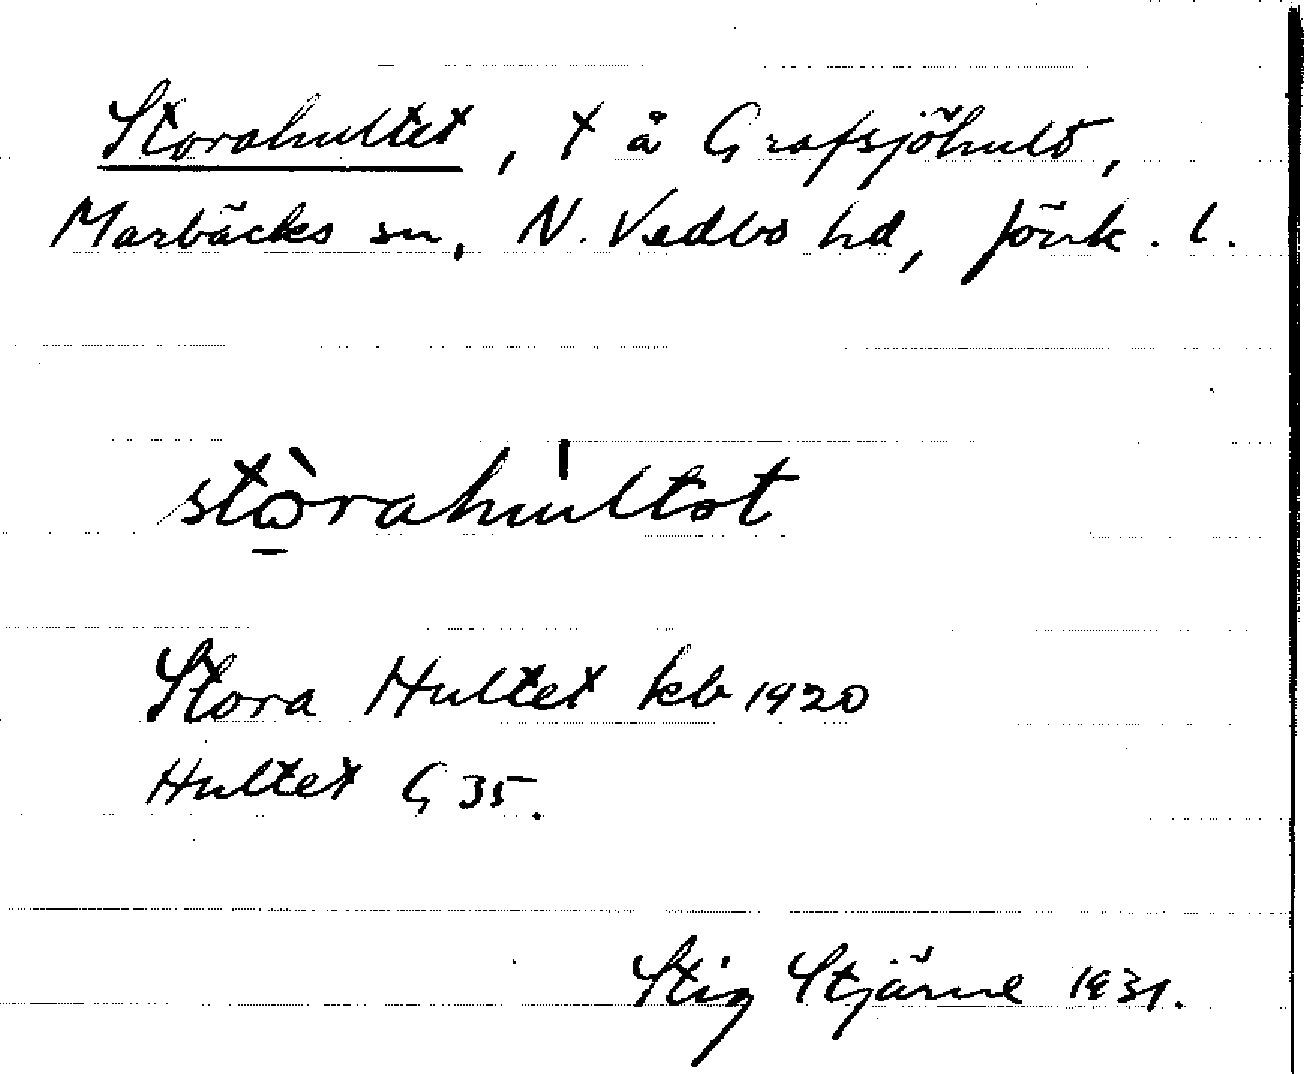 Storahultet, t å Grafsjöhult,
Marbäcks sn, N. Vedbo hd, Jönk. l.
stòrahúltət
Stora Hultet kb 1920
Hultet G 35.
Stig Stjärne 1931.